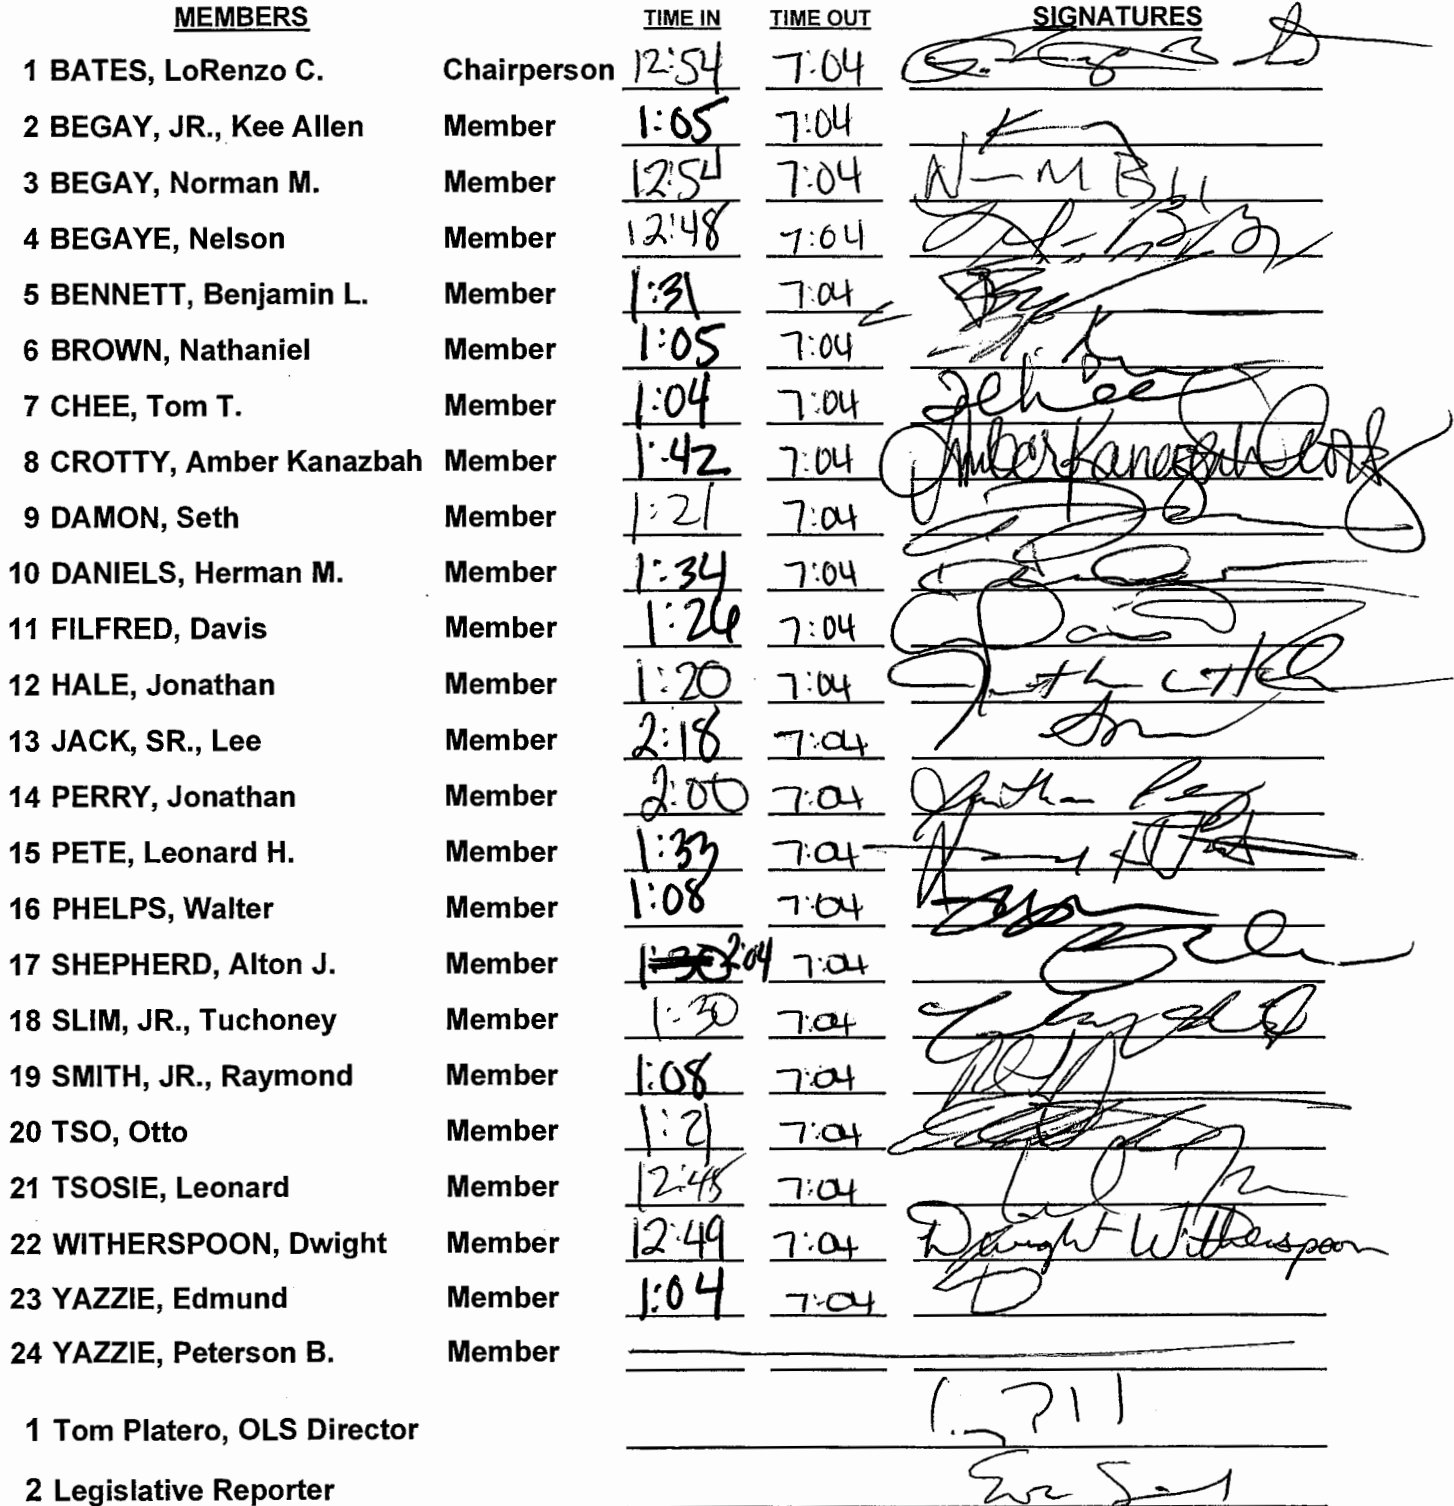 MEMBERS TIME IN TIME OUT SIGNATURES
1 BATES, LoRenzo C. Chairperson 12:54 7:04
2 BEGAY, JR., Kee Allen Member 1:05 7:04
3 BEGAY, Norman M. Member 12:54 7:04 N-M B
4 BEGAYE, Nelson Member 12:48 7:04
5 BENNETT, Benjamin L. Member 1:31 7:04
6 BROWN, Nathaniel Member 1:05 7:04
7 CHEE, Tom T. Member 1:04 7:04 TChee
8 CROTTY, Amber Kanazbah Member 1:42 7:04 Amber Kanazbah Crotty
9 DAMON, Seth Member 1:21 7:04
10 DANIELS, Herman M. Member 1:34 7:04
11 FILFRED, Davis Member 1:26 7:04
12 HALE, Jonathan Member 1:20 7:04
13 JACK, SR., Lee Member 2:18 7:04
14 PERRY, Jonathan Member 2:00 7:04 Jonathan Perry
15 PETE, Leonard H. Member 1:33 7:04
16 PHELPS, Walter Member 1:08 7:04
17 SHEPHERD, Alton J. Member 1:30 2:04 7:04
18 SLIM, JR., Tuchoney Member 1:30 7:04
19 SMITH, JR., Raymond Member 1:08 7:04
20 TSO, Otto Member 1:21 7:04
21 TSOSIE, Leonard Member 12:45 7:04
22 WITHERSPOON, Dwight Member 12:49 7:04 Dwight Witherspoon
23 YAZZIE, Edmund Member 1:04 7:04
24 YAZZIE, Peterson B. Member
1 Tom Platero, OLS Director
2 Legislative Reporter